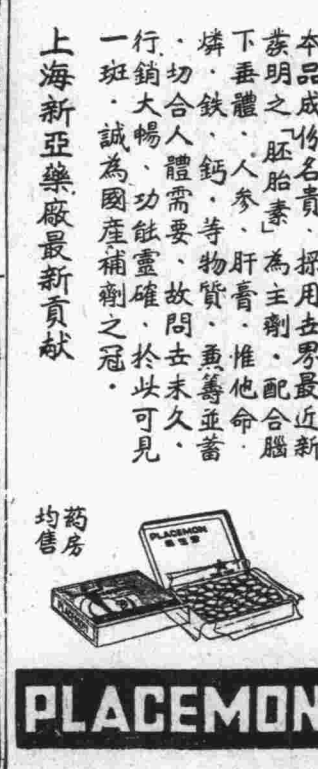 本品成份名貴、採用世界最近新
發明之「胚胎素」為主劑・配合腦
下垂體、人参、肝膏、惟他命・
燐・鉄、鈣、等物質、兼籌並蓄
・切合人體需要、故問世未久、
行銷大暢、功能靈確、於此可見
一斑・誠為國産補劑之冠・
上海新亞藥廠最新貢献
药房
均售
PLACEMON
PLACEMON
PLACEMON